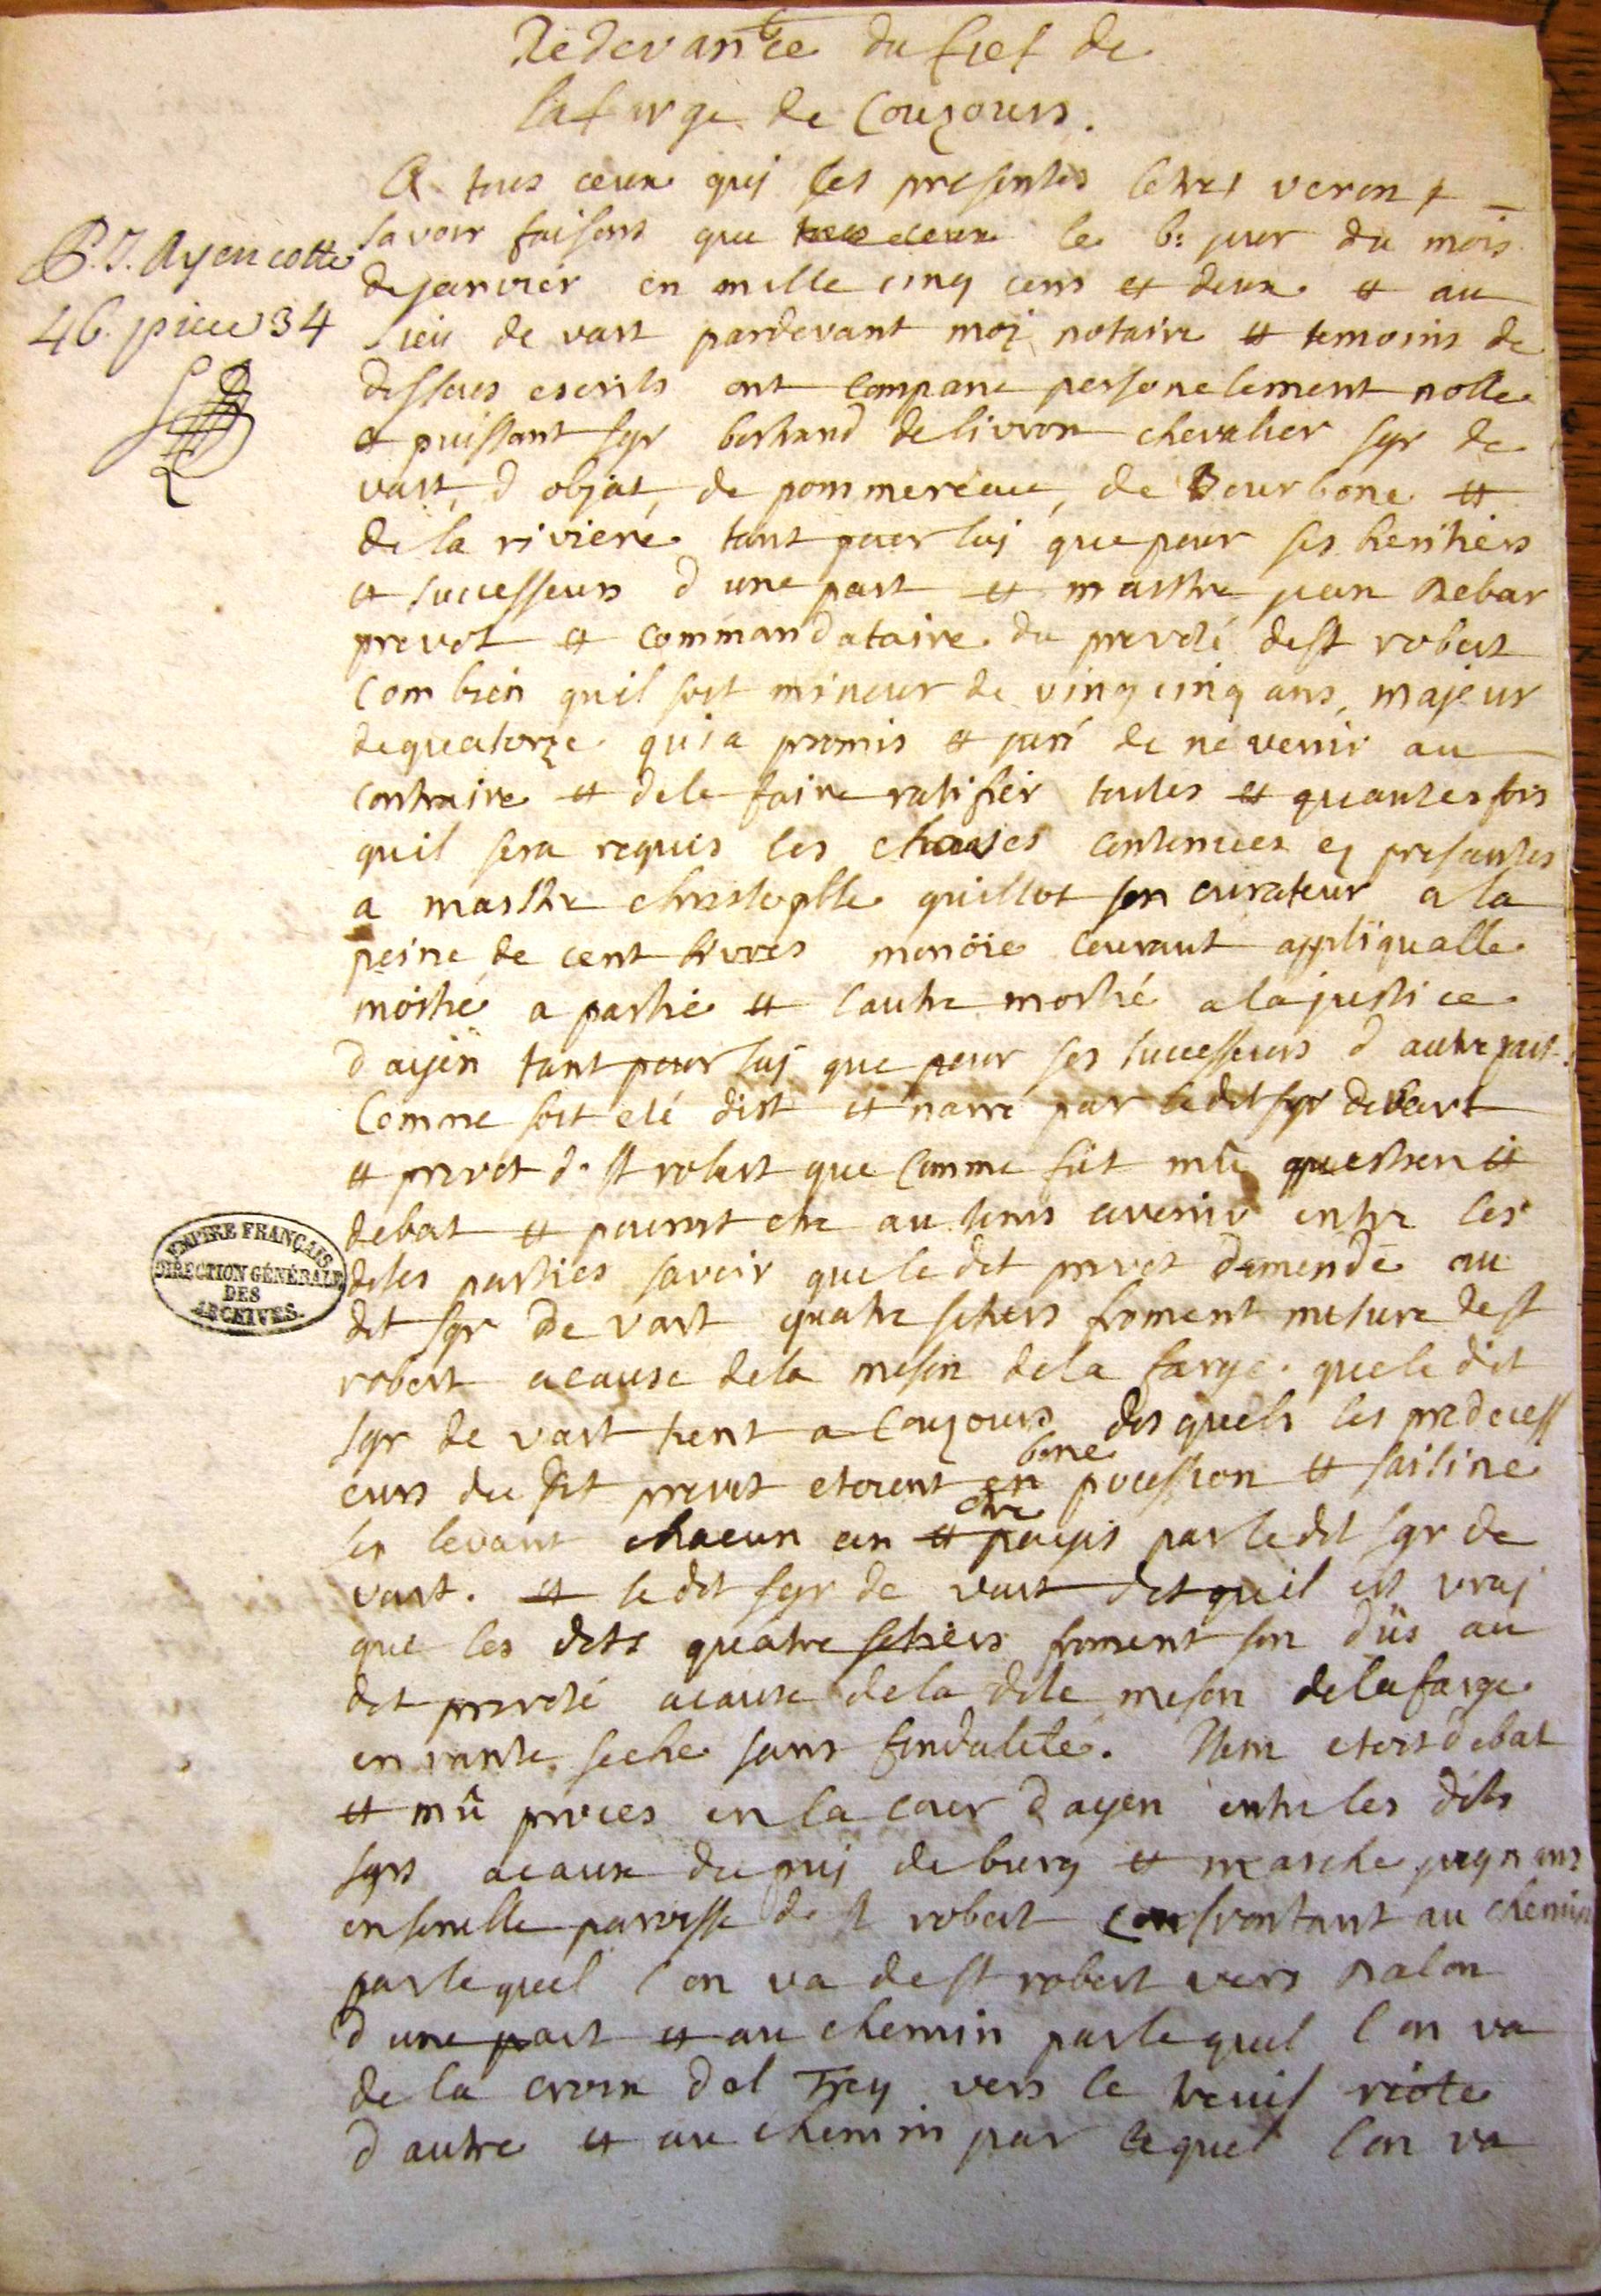 Redevance du fief de
lafarge de Couzours.
A tous ceux qui les presentes letres veront
P. J. Ayen cotte
46. piece 34
savoir faisons que le 6: jour du mois
de janvier en mille cinq cens et deux et au
lieu de vart pardevant moi notaire et temoins de
dessous escrits ont comparu personelement noble
et puissant sgr bertrand de livron chevalier sgr de
vart, d objat, de pommereau, de Bourbone et
de la riviere tant pour lui que pour ses heritiers
et successeurs d une part et maitre jean Debar
prevot et commandataire du prevoté de st robert
com bien qu il soit mineur de vingcinq ans, majeur
de quatorze qui a promis et juré de ne venir au
contraire et de le faire ratifier toutes et quantes fois
qu il sera requis les choses contenues es presantes
a maitre christophle guillot son curateur a la
peine de cent livres monoie courant appliquable
moitié a partie et l autre moitié a la justice
d ayen tant pour lui que pour ses successeurs d autre part.
Comme soit eté dist et narré par le dit sgr de vart
et prevot de st robert que comme fut mû question et
debat et pouroit etre au tems avenir entre les
EMPIRE FRANÇAIS
DIRECTION GÉNÉRALE
DES
ARCHIVES.
dites parties savoir que le dit prevot demende au
dit sgr de vart quatre setiers froment mesure de st
robert a cause de la meson de la farge que le dit
sgr de vart tient a Couzours des quels les predecess
eurs du dit prevot etoient en bone pocession et saisine
les levant chacun an et etre payés par le dit sgr de
vart. et le dit sgr de vart dit qu il est vrai
que les dits quatre setiers froment son dûs au
dit prevoté a cause de la dite meson de la farge
en rante seche sans fondalité. Item etoit debat
et mû proces en la cour d ayen entre les dits
sgrs a cause du puj de burg et marche joignans
ensemble paroisse de st robert confrontant au chemin
par le quel l on va de st robert vers salon
d une part et au chemin par le quel l on va
de la croix del Trey vers le
d autre et au chemin par le quel l on va